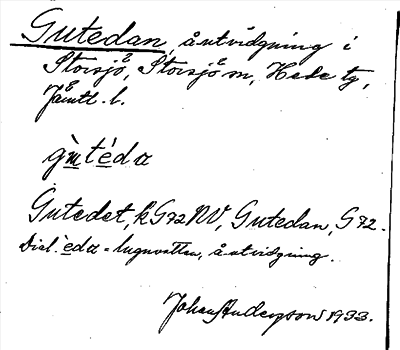 Gutedan, åutvidgning i
Storsjö, Storsjö sn, Hede tg,
Jämtl. l.
gùtéda
Gutedet, kG72NV, Gutedan, G72.
Dial. èda = lugnvatten, åutvidgning.
Johan Anderson 1933.